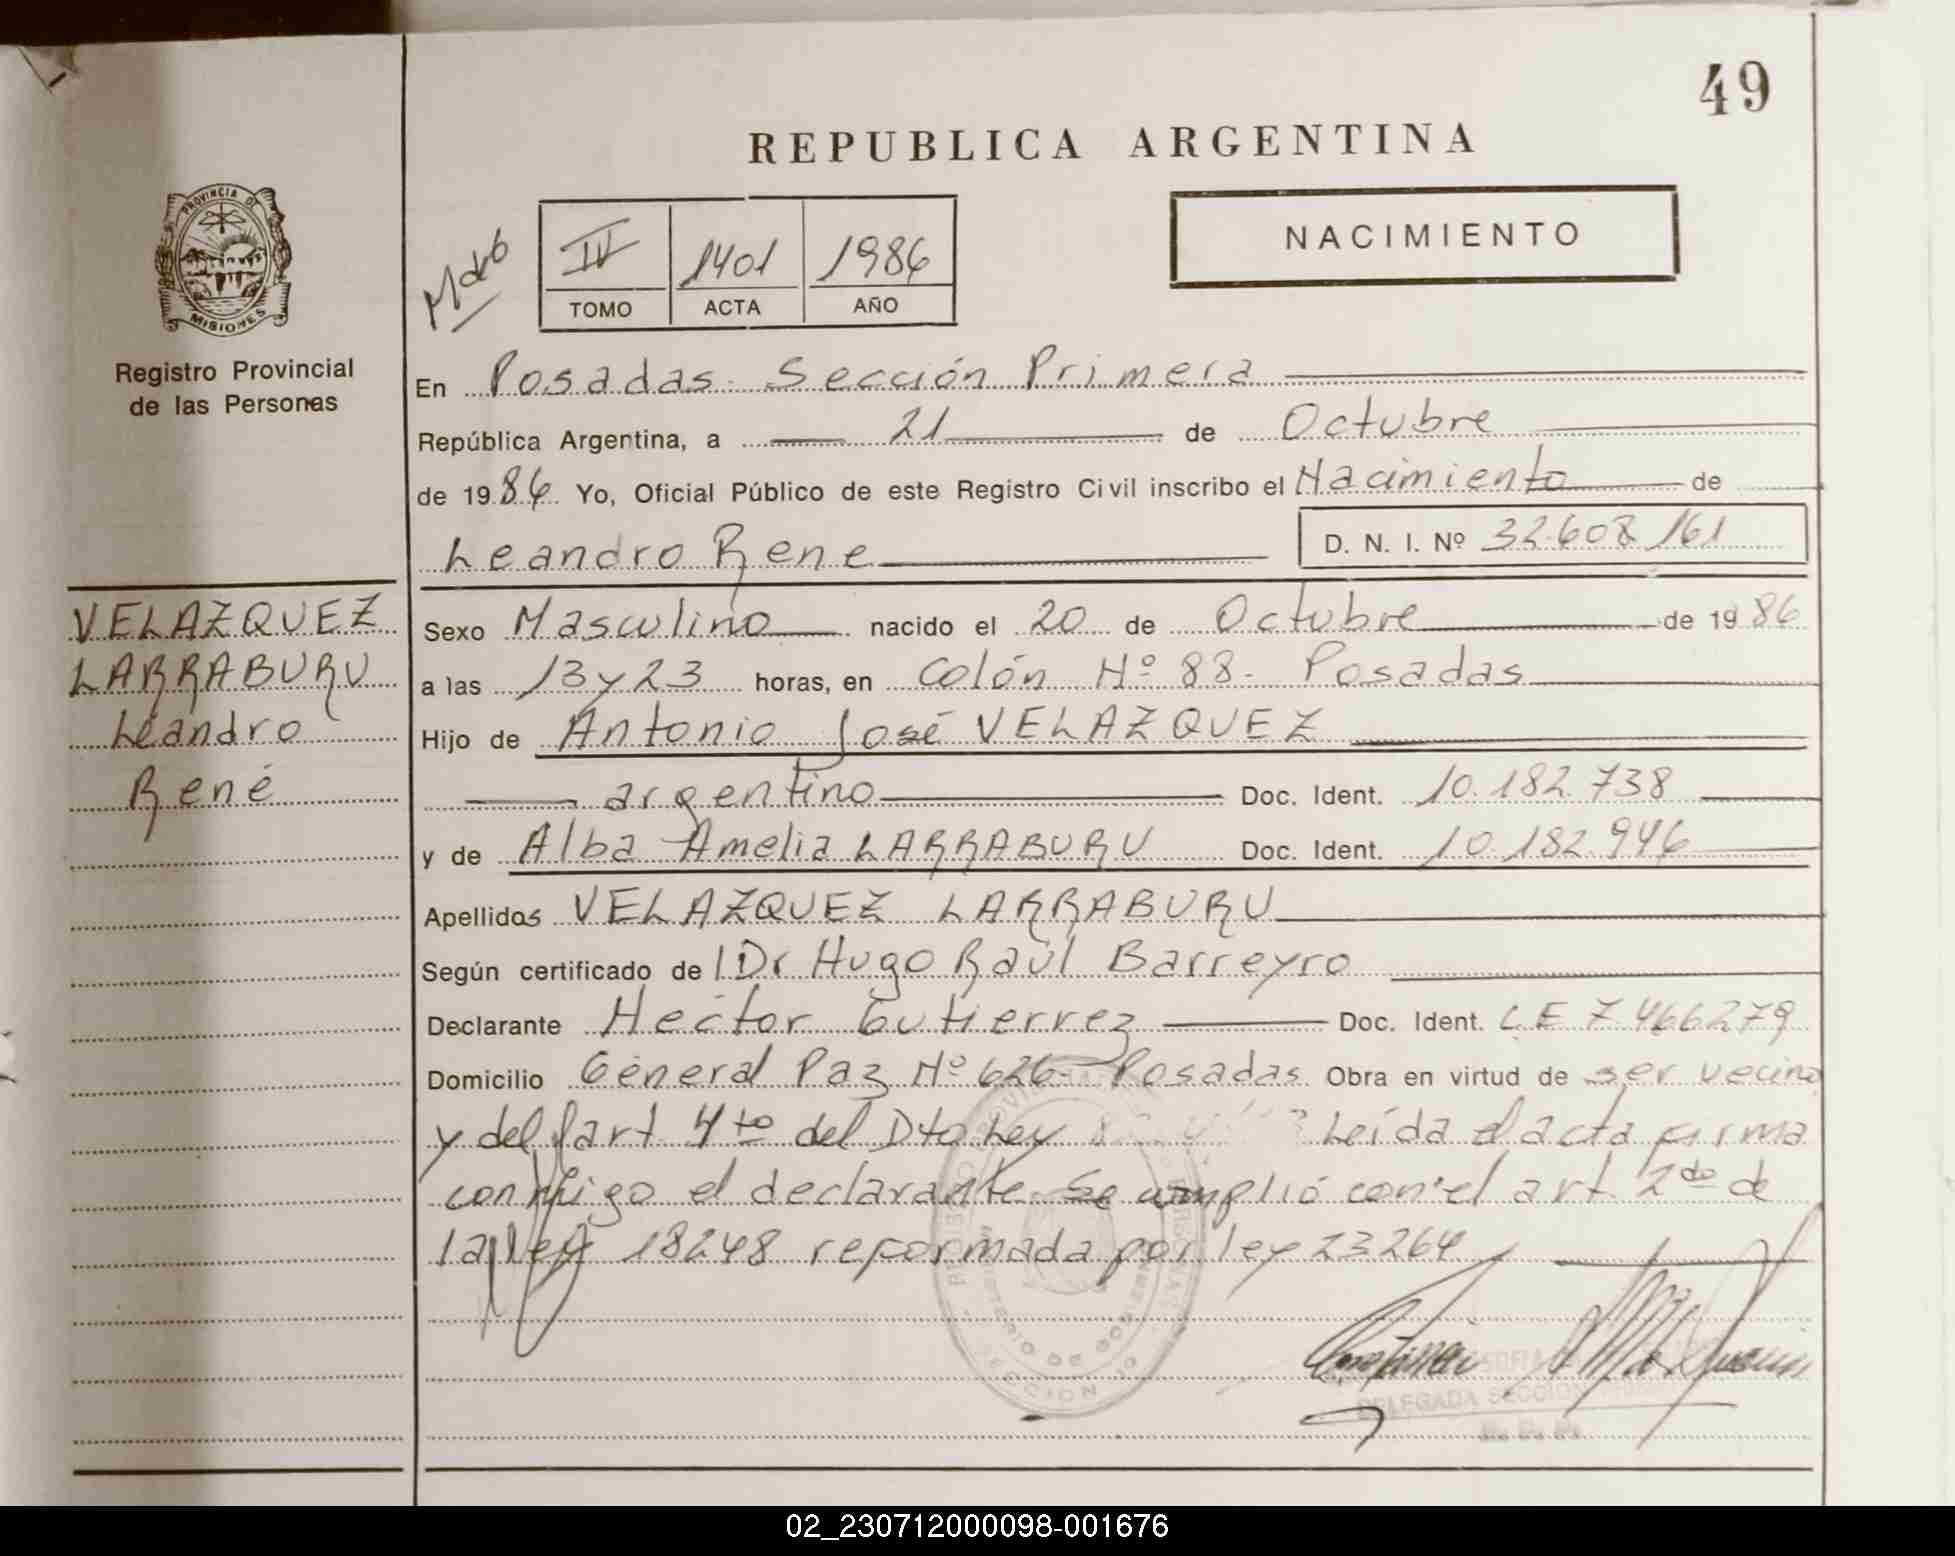 49
REPUBLICA ARGENTINA
PROVINCIA DE
MISIONES
Registro Provincial
de las Personas
IV 1401 1986
TOMO ACTA AÑO
NACIMIENTO
En Posadas. Sección Primera
República Argentina, a 21 de Octubre
de 1986 Yo, Oficial Público de este Registro Civil inscribo el Nacimiento de
Leandro Rene D. N. I. Nº 32.608.161
VELAZQUEZ
LARRABURU
Leandro
René
Sexo Masculino nacido el 20 de Octubre de 1986
a las 13 y 23 horas, en Colón Nº 88. Posadas
Hijo de Antonio José VELAZQUEZ
argentino Doc. Ident. 10.182.738
y de Alba Amelia LARRABURU Doc. Ident. 10.182.946
Apellidos VELAZQUEZ LARRABURU
Según certificado de Dr Hugo Raúl Barreyro
Declarante Héctor Gutierrez Doc. Ident. L E 7.466279
Domicilio General Paz Nº 626- Posadas Obra en virtud de ser vecino
y del art 4to del Dto Ley Leída el acta firma
conmigo el declarante. Se cumplió con el art 2do de
la ley 18248 reformada por ley 23264
DELEGADA SECCION
02_230712000098-001676